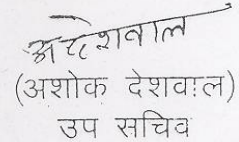 अ देशवाल
(अशोक देशवाल)
उप सचिव